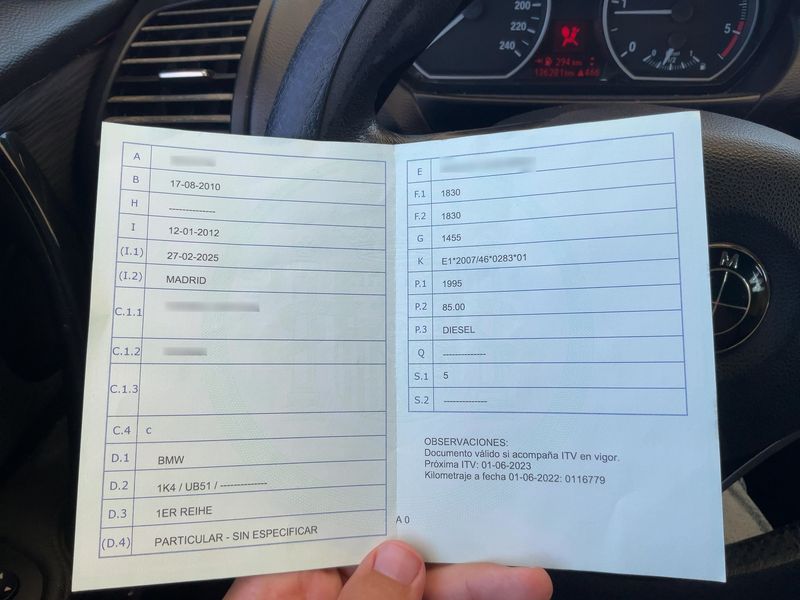 200
220
240
294 km
136281 km 466
1
0
5
0 1/2 1
A
B 17-08-2010
H --------------
I 12-01-2012
(I.1) 27-02-2025
(I.2) MADRID
C.1.1
C.1.2
C.1.3
C.4 c
D.1 BMW
D.2 1K4 / UB51 / --------------
D.3 1ER REIHE
(D.4) PARTICULAR - SIN ESPECIFICAR
E
F.1 1830
F.2 1830
G 1455
K E1*2007/46*0283*01
P.1 1995
P.2 85.00
P.3 DIESEL
Q --------------
S.1 5
S.2 --------------
OBSERVACIONES:
Documento válido si acompaña ITV en vigor.
Próxima ITV: 01-06-2023
Kilometraje a fecha 01-06-2022: 0116779
A 0
M W